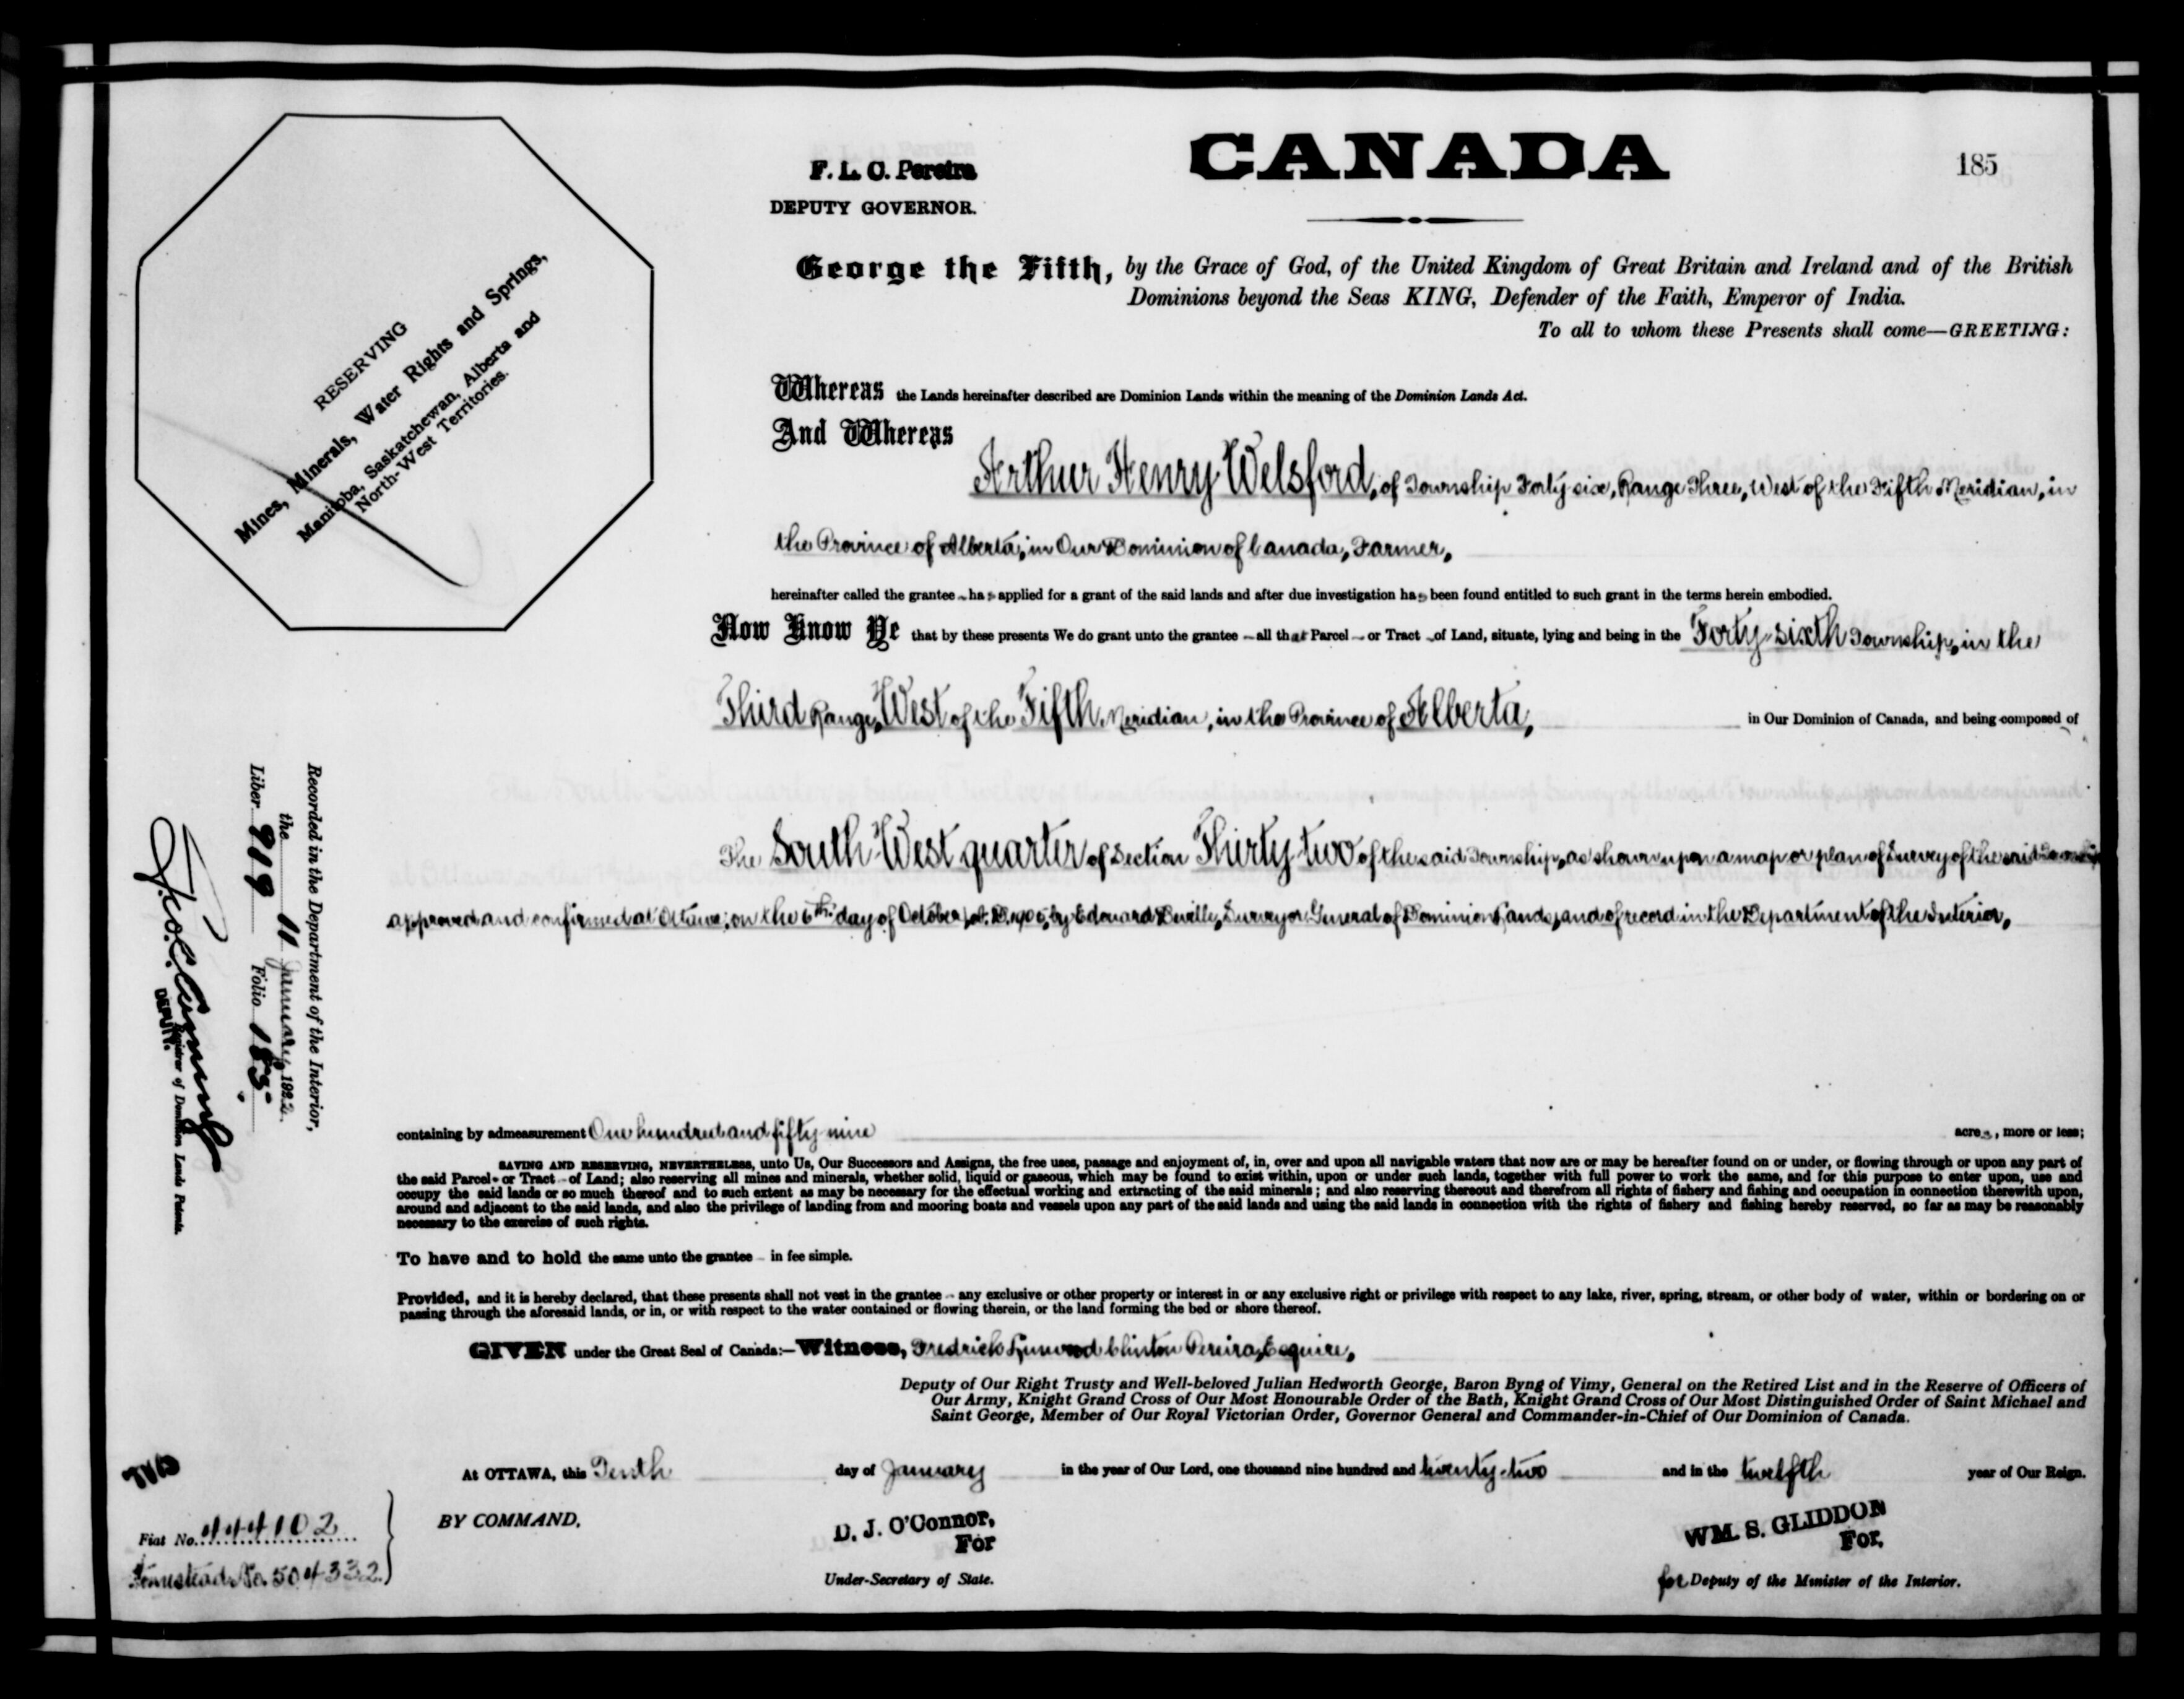 F. L. C. Pereira
DEPUTY GOVERNOR.
CANADA
185
George the Fifth, by the Grace of God, of the United Kingdom of Great Britain and Ireland and of the British
Dominions beyond the Seas KING, Defender of the Faith, Emperor of India.
To all to whom these Presents shall come—GREETING:
RESERVING
Mines, Minerals, Water Rights and Springs,
Manitoba, Saskatchewan, Alberta and
North-West Territories.
Whereas the Lands hereinafter described are Dominion Lands within the meaning of the Dominion Lands Act.
And Whereas
Arthur Henry Welsford, of Township Forty-six, Range Three, West of the Fifth Meridian, in
the Province of Alberta, in Our Dominion of Canada, Farmer,
hereinafter called the grantee has applied for a grant of the said lands and after due investigation has been found entitled to such grant in the terms herein embodied.
Now Know Ye that by these presents We do grant unto the grantee – all that Parcel – or Tract – of Land, situate, lying and being in the Forty-sixth Township, in the
Third Range, West of the Fifth Meridian, in the Province of Alberta, in Our Dominion of Canada, and being composed of
The South West quarter of Section Thirty two of the said Township, as shown upon a map or plan of Survey of the said Township
approved and confirmed at Ottawa, on the 6th day of October, A.D. by Edouard Deville, Surveyor General of Dominion Lands, and of record in the Department of the Interior,
Recorded in the Department of the Interior,
the 11 January 1922.
Liber 919 Folio 185
DEPUTY.
Registrar of Dominion Lands Patents.
containing by admeasurement One hundred and fifty nine acres, more or less;
SAVING AND RESERVING, NEVERTHELESS, unto Us, Our Successors and Assigns, the free uses, passage and enjoyment of, in, over and upon all navigable waters that now are or may be hereafter found on or under, or flowing through or upon any part of
the said Parcel – or Tract – of Land; also reserving all mines and minerals, whether solid, liquid or gaseous, which may be found to exist within, upon or under such lands, together with full power to work the same, and for this purpose to enter upon, use and
occupy the said lands or so much thereof and to such extent as may be necessary for the effectual working and extracting of the said minerals; and also reserving thereout and therefrom all rights of fishery and fishing and occupation in connection therewith upon,
around and adjacent to the said lands, and also the privilege of landing from and mooring boats and vessels upon any part of the said lands and using the said lands in connection with the rights of fishery and fishing hereby reserved, so far as may be reasonably
necessary to the exercise of such rights.
To have and to hold the same unto the grantee – in fee simple.
Provided, and it is hereby declared, that these presents shall not vest in the grantee – any exclusive or other property or interest in or any exclusive right or privilege with respect to any lake, river, spring, stream, or other body of water, within or bordering on or
passing through the aforesaid lands, or in, or with respect to the water contained or flowing therein, or the land forming the bed or shore thereof.
GIVEN under the Great Seal of Canada:—Witness, Fredrick Linwood Clinton Pereira, Esquire,
Deputy of Our Right Trusty and Well-beloved Julian Hedworth George, Baron Byng of Vimy, General on the Retired List and in the Reserve of Officers of
Our Army, Knight Grand Cross of Our Most Honourable Order of the Bath, Knight Grand Cross of Our Most Distinguished Order of Saint Michael and
Saint George, Member of Our Royal Victorian Order, Governor General and Commander-in-Chief of Our Dominion of Canada.
At OTTAWA, this Tenth day of January in the year of Our Lord, one thousand nine hundred and twenty-two and in the twelfth year of Our Reign.
BY COMMAND,
D. J. O'Connor,
For
Under-Secretary of State.
WM. S. GLIDDON
For,
for Deputy of the Minister of the Interior.
Fiat No. 444102
Homestead No. 504332